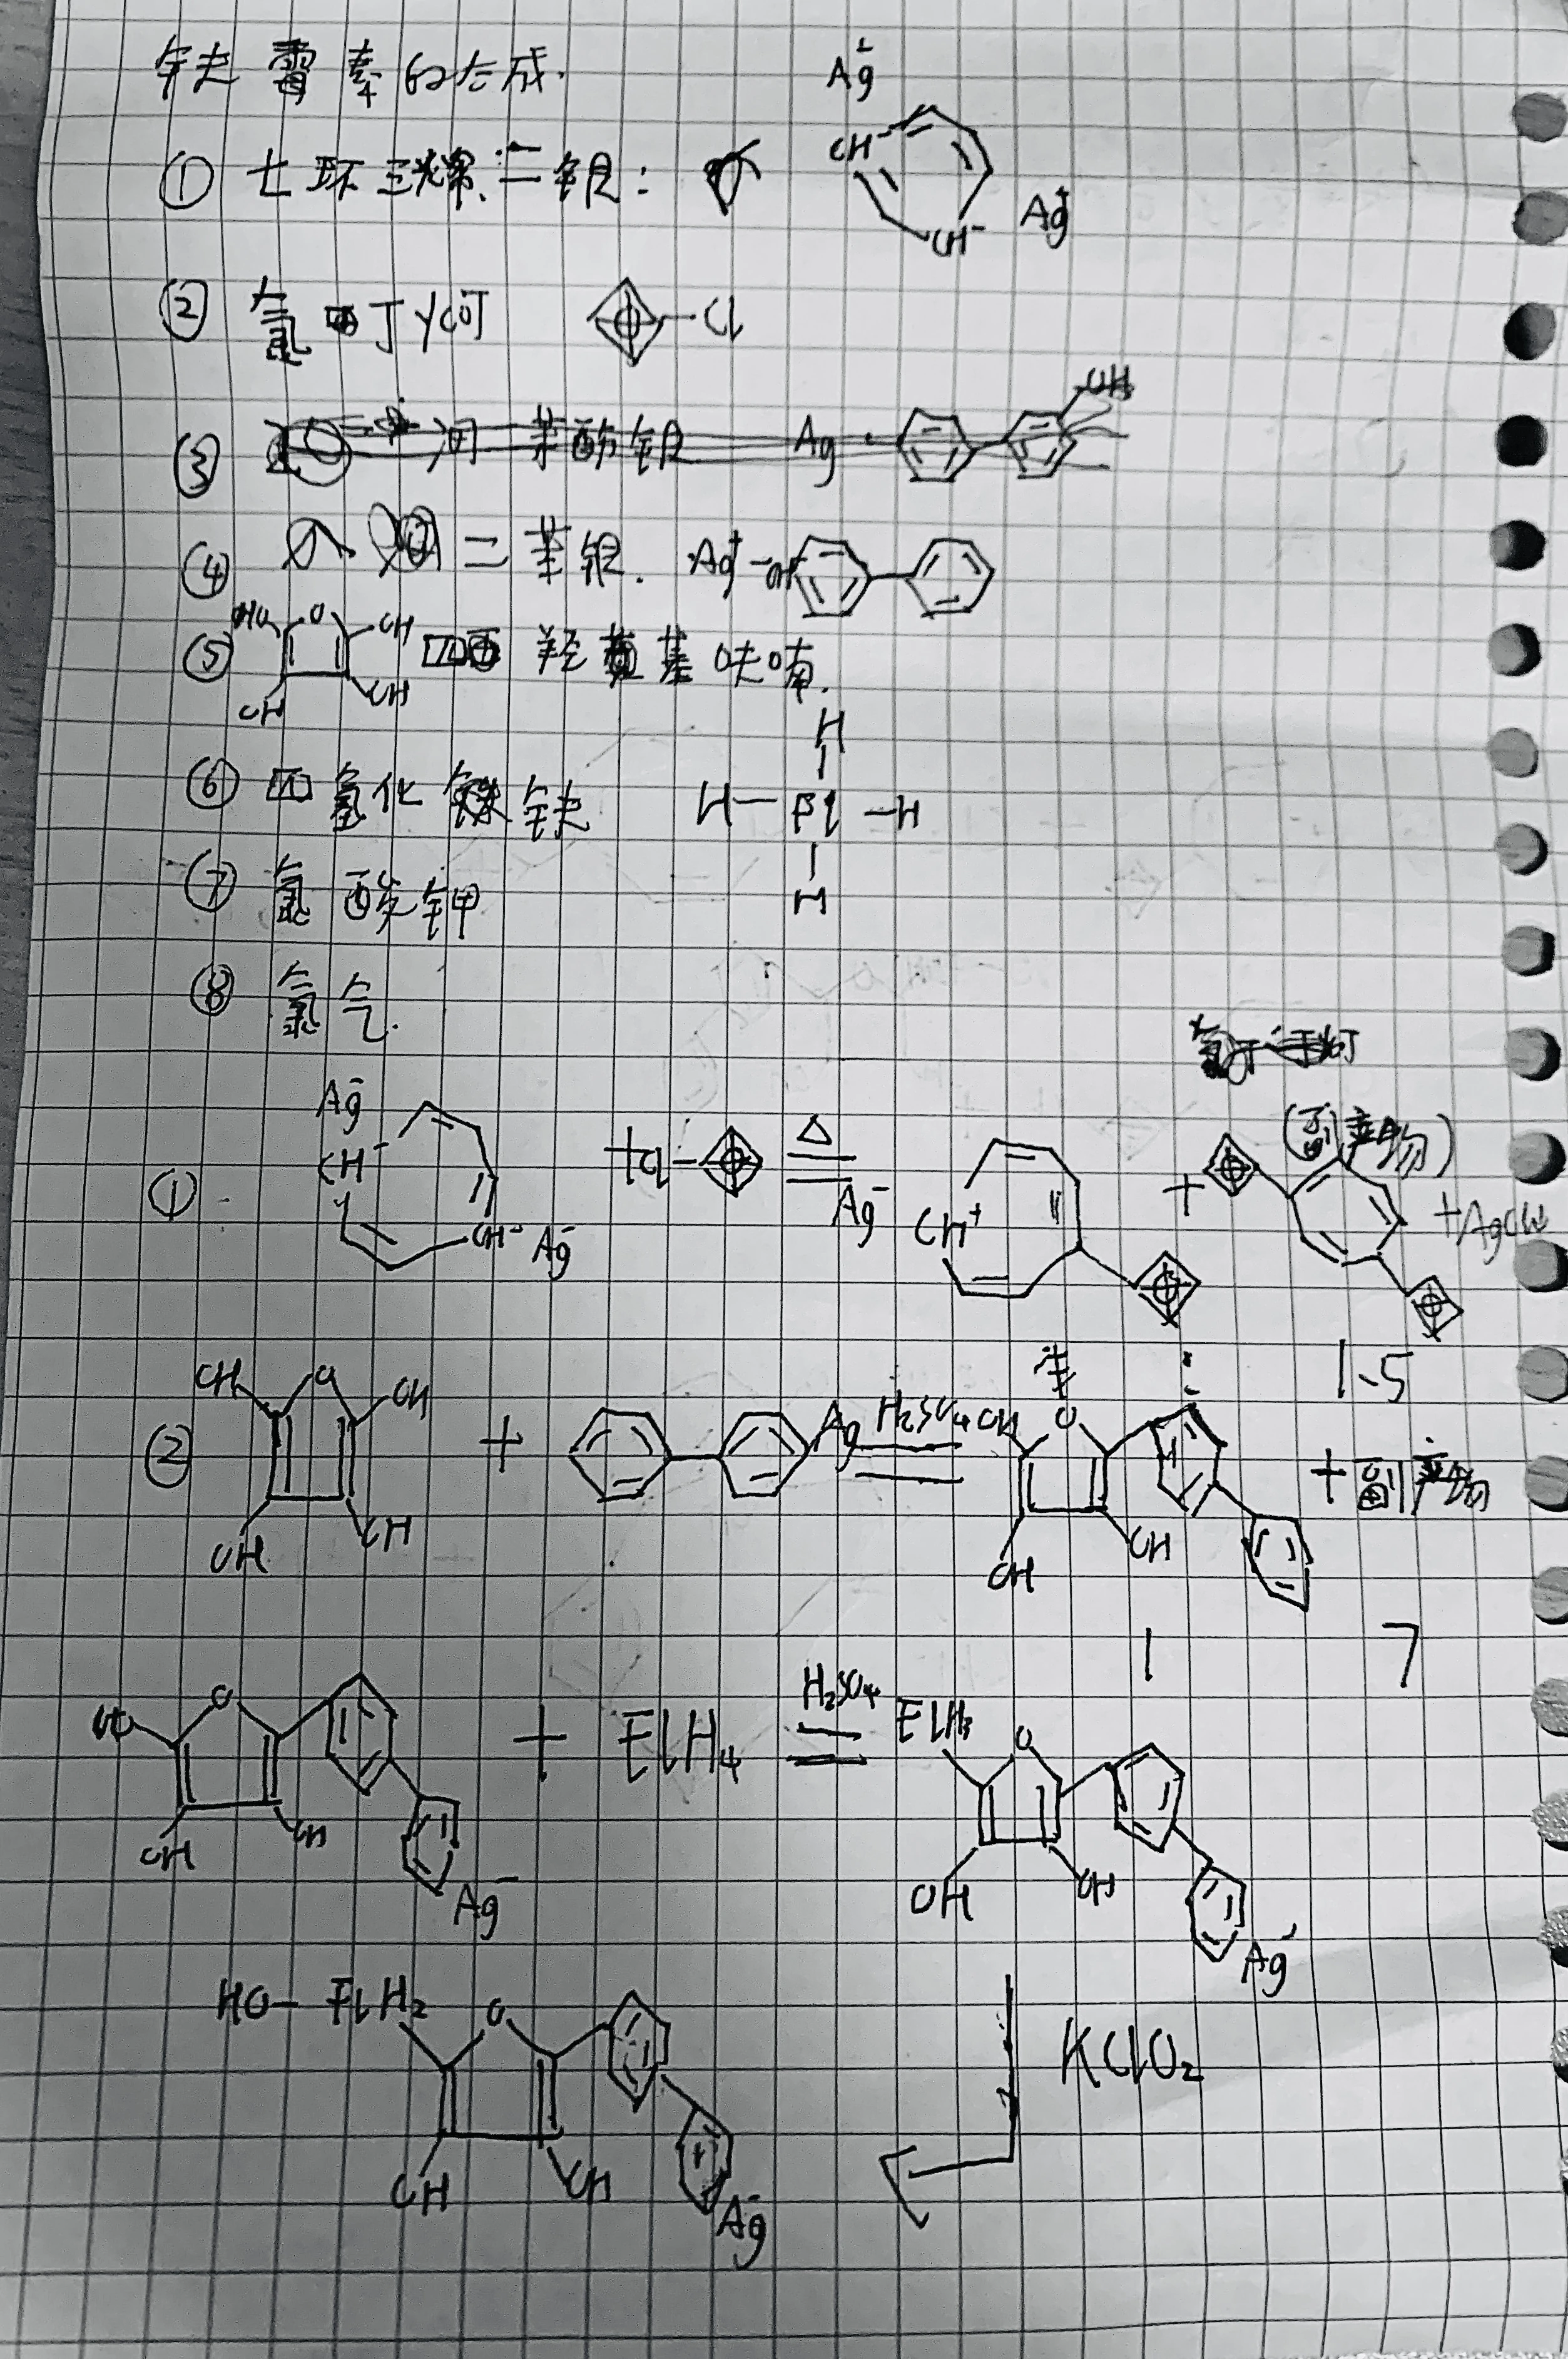 钅夫霉素的合成.
Ag
CH⁻
① 七环三烯二银:
Ag
CH⁻
② 氯四丁 Cl
③ 苯酚银 Ag OH
④ 二苯银. Ag
HO O OH
⑤ 四 羟基呋喃.
OH OH
H
⑥ 四氢化钅夫 H—Fl—H
⑦ 氯酸钾 H
⑧ 氯气.
Ag⁻ (副产物)
CH⁻ +Cl △ +
① CH⁻ Ag⁻ Ag⁻ CH⁺ +AgCl
1.5
OH O OH
② + Ag H₂SO₄ OH O + 副产物
OH OH OH OH
1 7
HO O + FlH₄ H₂SO₄ FlH₃ O
OH OH OH OH
Ag⁻ Ag⁻
HO— FlH₂ O
KClO₂
OH OH
Ag⁻